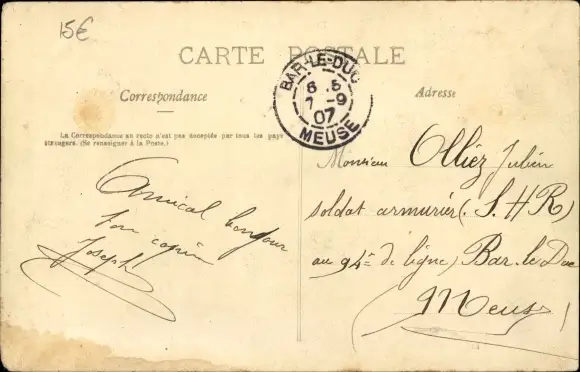 15€
CARTE POSTALE
BAR-LE-DUC
6 .5
7 -9
07
MEUSE
Correspondance
La Correspondance au recto n'est pas acceptée par tous les pays
étrangers. (Se renseigner à la Poste.)
Amical bonjour
ton copin
Joseph
Adresse
Monsieur Olliéz Julien
soldat armurier (S.H.R)
au 94e de ligne) Bar le Duc
(Meuse)